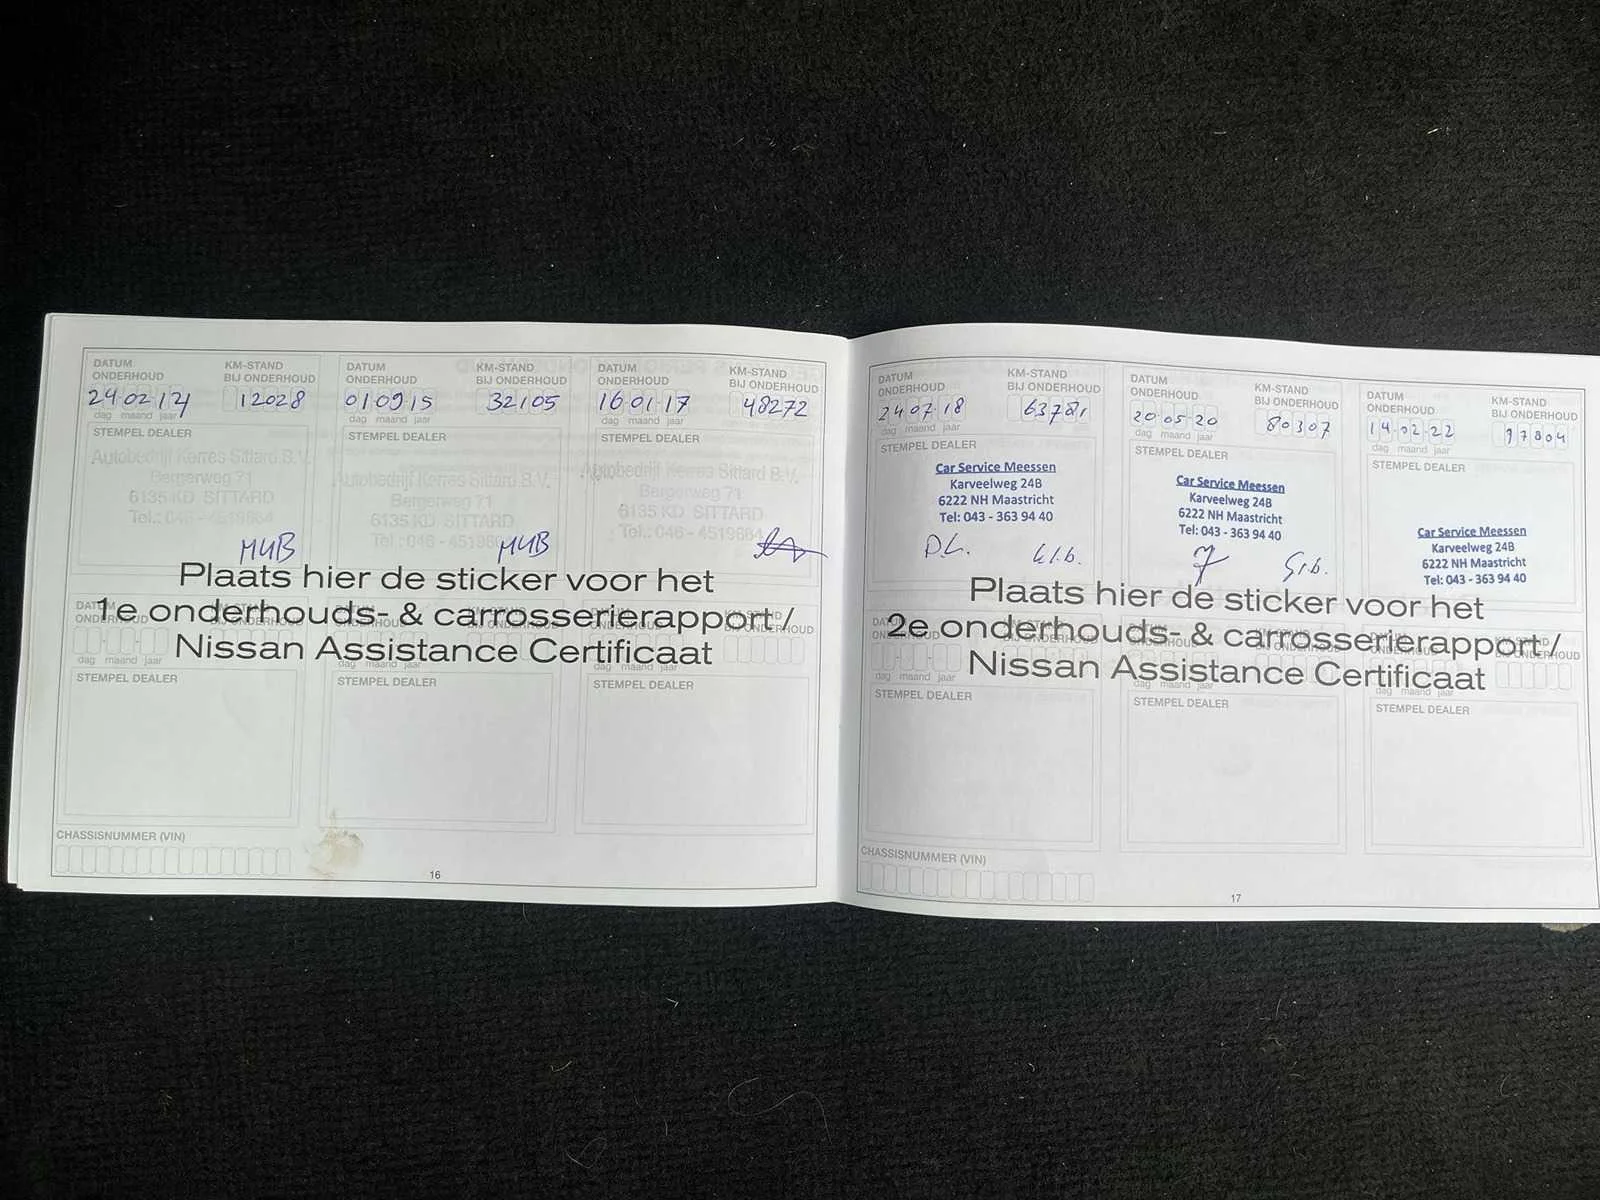 DATUM ONDERHOUD
KM-STAND BIJ ONDERHOUD
24 02 14
12028
dag maand jaar
STEMPEL DEALER
Autobedrijf Kerres Sittard B.V.
Bergerweg 71
6135 KD SITTARD
Tel.: 046 - 4519664
MUB
DATUM ONDERHOUD
KM-STAND BIJ ONDERHOUD
01 09 15
32105
dag maand jaar
STEMPEL DEALER
Autobedrijf Kerres Sittard B.V.
Bergerweg 71
6135 KD SITTARD
Tel.: 046 - 45196
MUB
DATUM ONDERHOUD
KM-STAND BIJ ONDERHOUD
16 01 17
48272
dag maand jaar
STEMPEL DEALER
Autobedrijf Kerres Sittard B.V.
Bergerweg 71
6135 KD SITTARD
Tel.: 046 - 4519664
Plaats hier de sticker voor het
1e onderhouds- & carrosserierapport /
Nissan Assistance Certificaat
dag maand jaar
dag maand jaar
dag maand jaar
STEMPEL DEALER
STEMPEL DEALER
STEMPEL DEALER
CHASSISNUMMER (VIN)
16
DATUM ONDERHOUD
KM-STAND BIJ ONDERHOUD
24 07 18
63781
dag maand jaar
STEMPEL DEALER
Car Service Meessen
Karveelweg 24B
6222 NH Maastricht
Tel: 043 - 363 94 40
DATUM ONDERHOUD
KM-STAND BIJ ONDERHOUD
20 05 20
80307
dag maand jaar
STEMPEL DEALER
Car Service Meessen
Karveelweg 24B
6222 NH Maastricht
Tel: 043 - 363 94 40
DATUM ONDERHOUD
KM-STAND BIJ ONDERHOUD
14 02 22
97804
dag maand jaar
STEMPEL DEALER
Car Service Meessen
Karveelweg 24B
6222 NH Maastricht
Tel: 043 - 363 94 40
Plaats hier de sticker voor het
2e onderhouds- & carrosserierapport /
Nissan Assistance Certificaat
dag maand jaar
dag maand jaar
dag maand jaar
STEMPEL DEALER
STEMPEL DEALER
STEMPEL DEALER
CHASSISNUMMER (VIN)
17